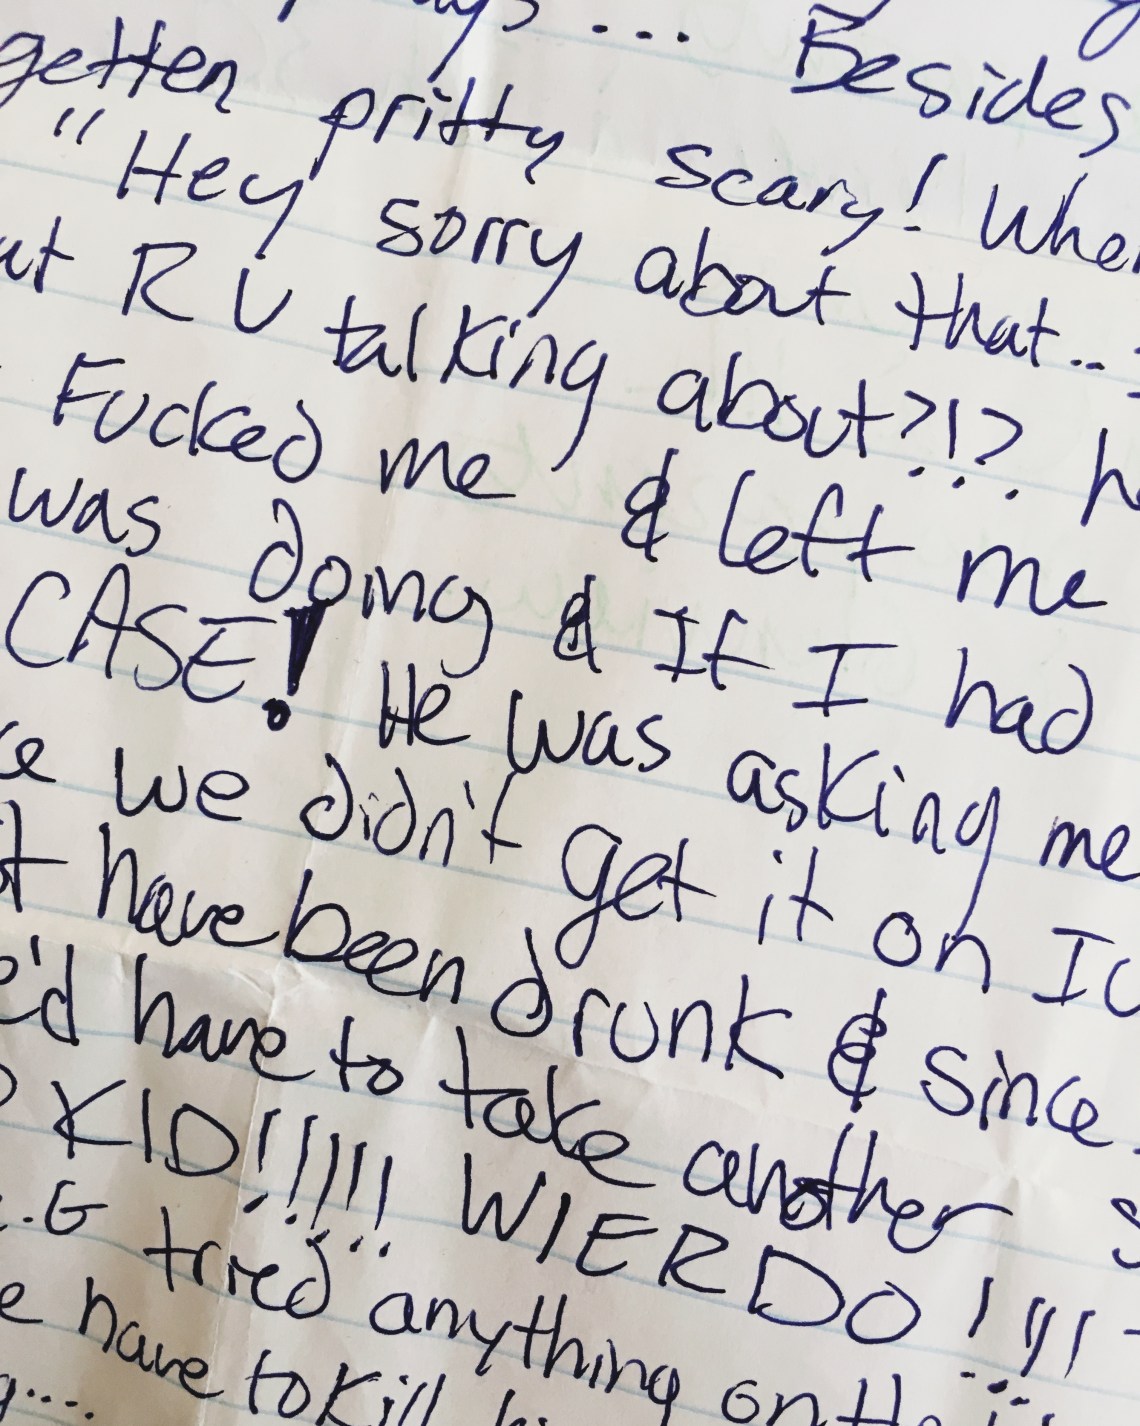 ... Besides
getten pritty scary! Whe
"Hey sorry about that...
ut R U talking about?!? h
Fucked me & left me
was doing & If I had
CASE! He was asking me
ce we didn't get it on
t have been drunk & since
e'd have to take another s
KID!!!!! WIERDO!!!!
.G tried anything on th
e have to kill
g....